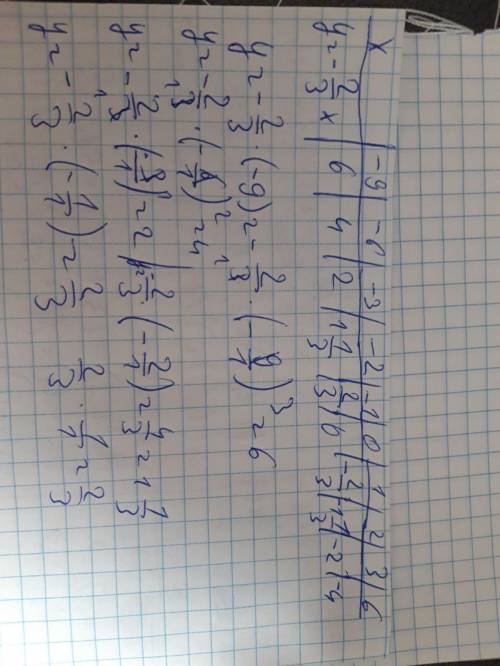 x | -9 | -6 | -3 | -2 | -1 | 0 | 1 | 2 | 3 | 6
y = -2/3 x | 6 | 4 | 2 | 1 1/3 | 2/3 | 0 | -2/3 | -1 1/3 | -2 | -4
y = -2/3 · (-9) = -2/3 · (-9/1)³ = 6
y = -2/3 · (-6/1)² = 4
y = -2/3 · (-3/1)¹ = 2 | -2/3 (-2/1) = 4/3 = 1 1/3
y = -2/3 · (-1/1) = 2/3 2/3 · 1/1 = 2/3